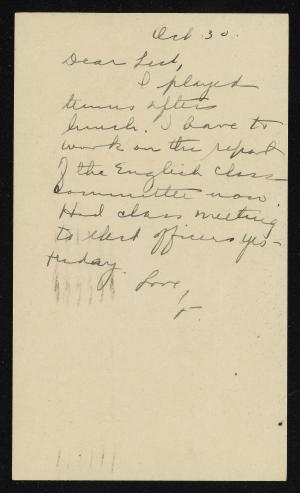 Oct 30.
Dear
I played
tennis after
lunch. I have to
work on the report
of the English class
committee now.
Had class meeting
to elect officers yes-
terday.
Love,
F.